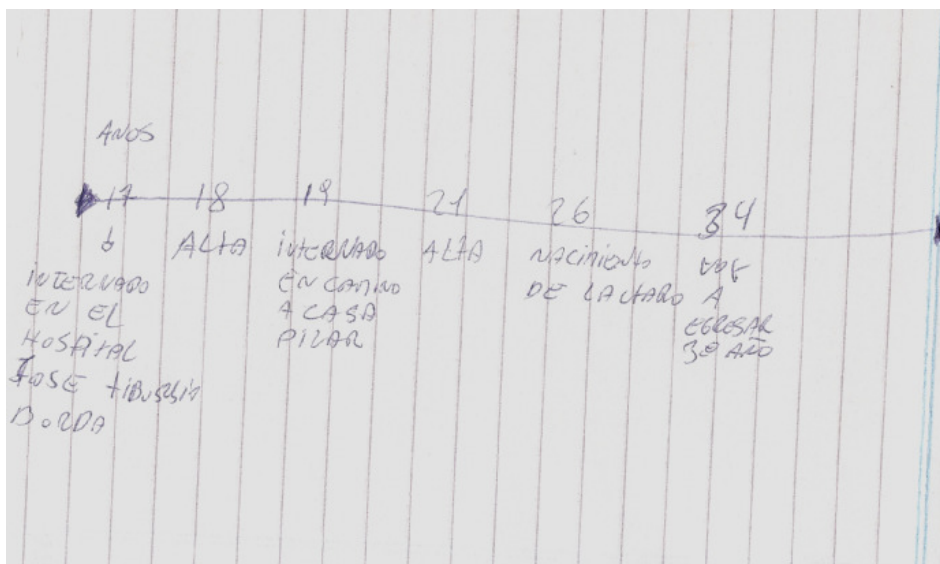 AÑOS
17 18 19 21 26 34
INTERNADO
EN EL
HOSPITAL
JOSE TIBURSIO
BORDA
ALTA
INTERNADO
EN CAMINO
A CASA
PILAR
ALTA
NACIMIENTO
DE LAUTARO
VOY
A
EGRESAR
3º AÑO